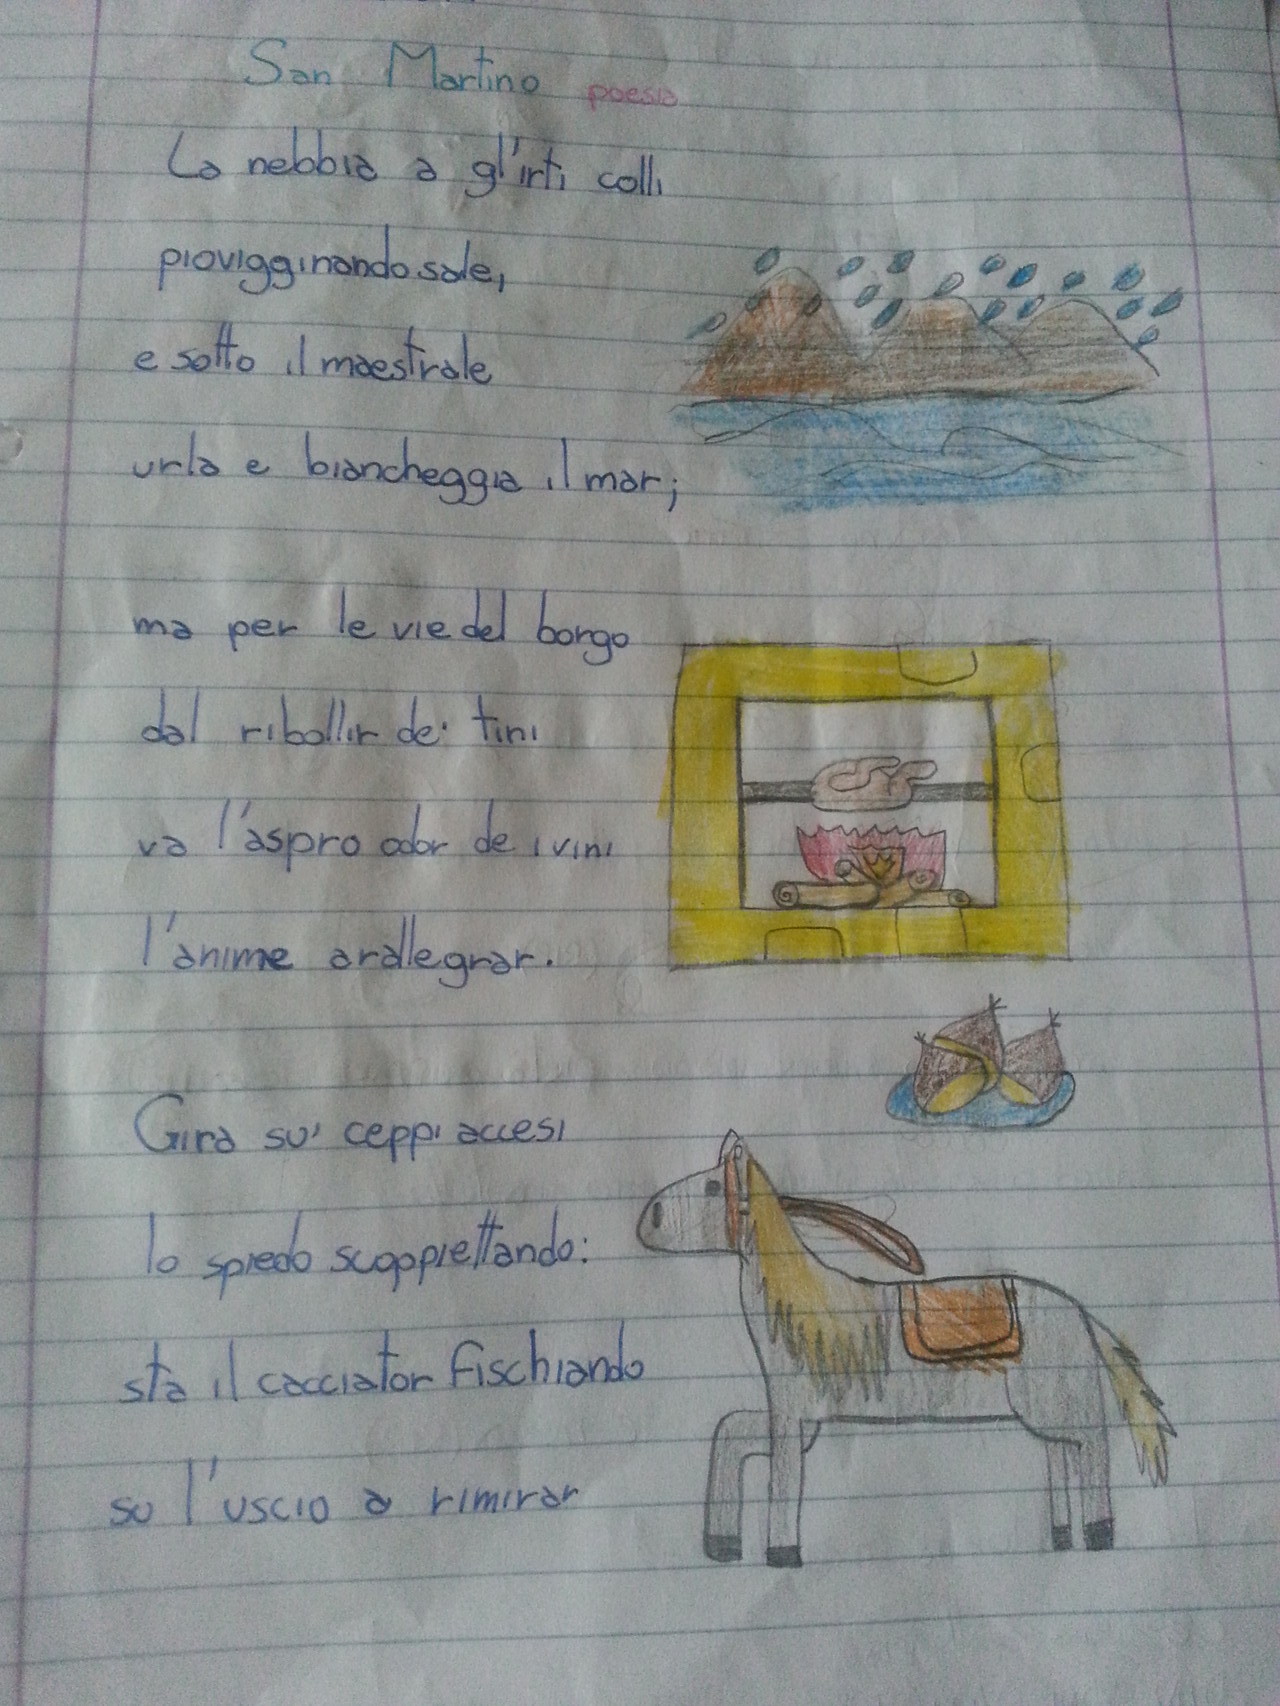 San Martino poesia
La nebbia a gl'irti colli
piovigginando sale,
e sotto il maestrale
urla e biancheggia il mar;
ma per le vie del borgo
dal ribollir de' tini
va l'aspro odor de i vini
l'anime arallegrar.
Gira su' ceppi accesi
lo spiedo scoppiettando:
sta il cacciator fischiando
su l'uscio a rimirar